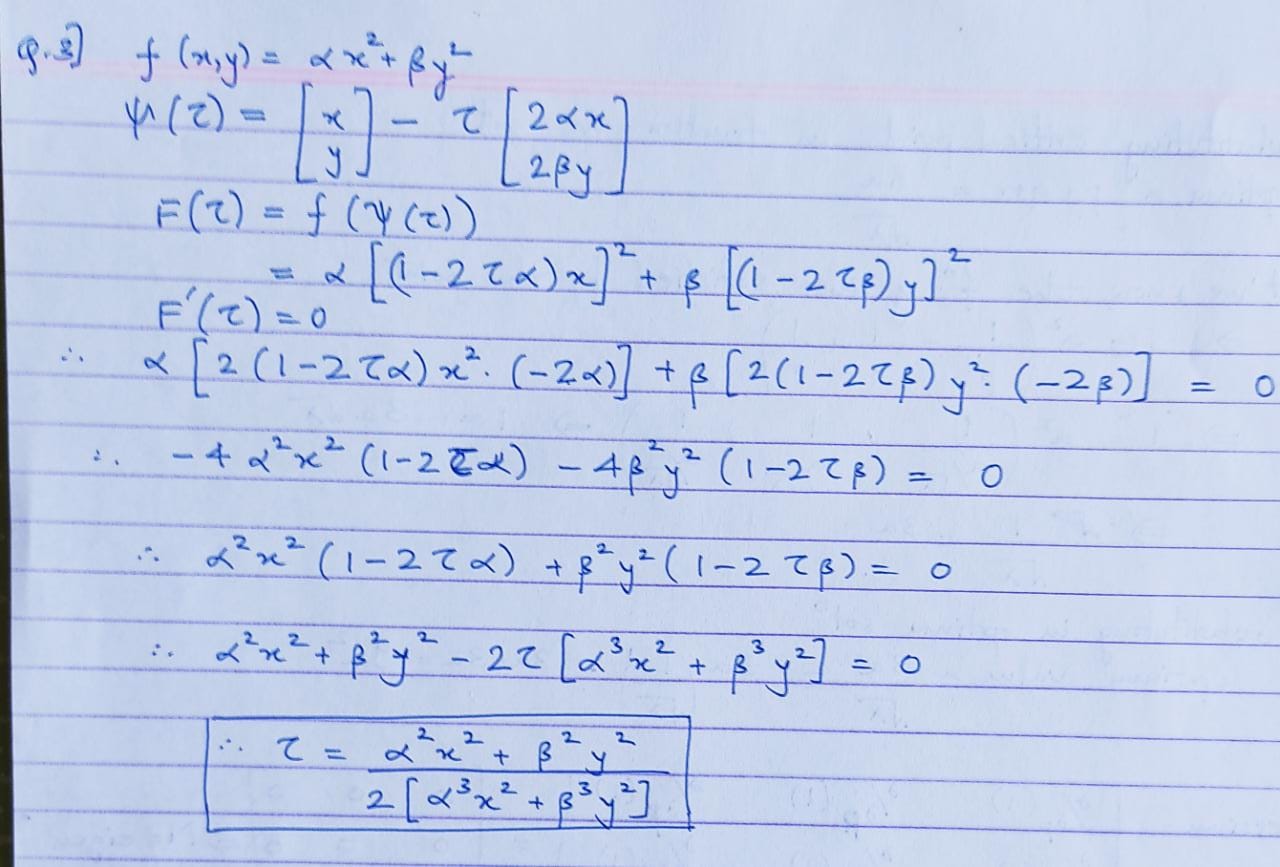 Q.3] f (x,y) = αx² + βy²
ψ(τ) = [x y] - τ [2αx 2βy]
F(τ) = f (ψ(τ))
= α [(1-2τα)x]² + β [(1-2τβ)y]²
F'(τ) = 0
∴ α [2(1-2τα)x². (-2α)] + β [2(1-2τβ)y². (-2β)] = 0
∴ -4α²x² (1-2τα) - 4β²y² (1-2τβ) = 0
∴ α²x² (1-2τα) + β²y² (1-2τβ) = 0
∴ α²x² + β²y² - 2τ [α³x² + β³y²] = 0
∴ τ = α²x² + β²y²
2 [α³x² + β³y²]